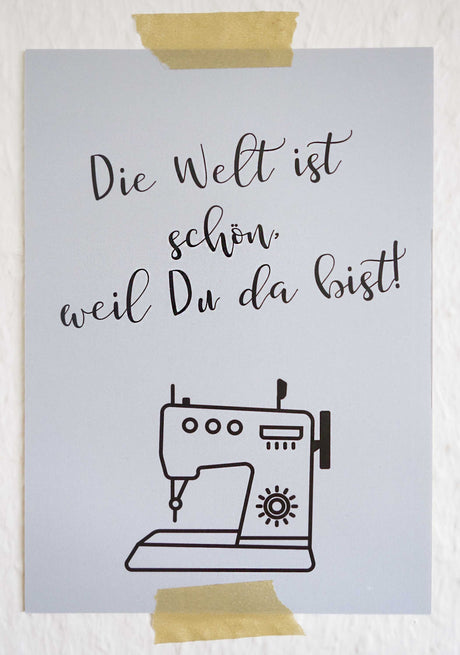 Die Welt ist
schön,
weil Du da bist!